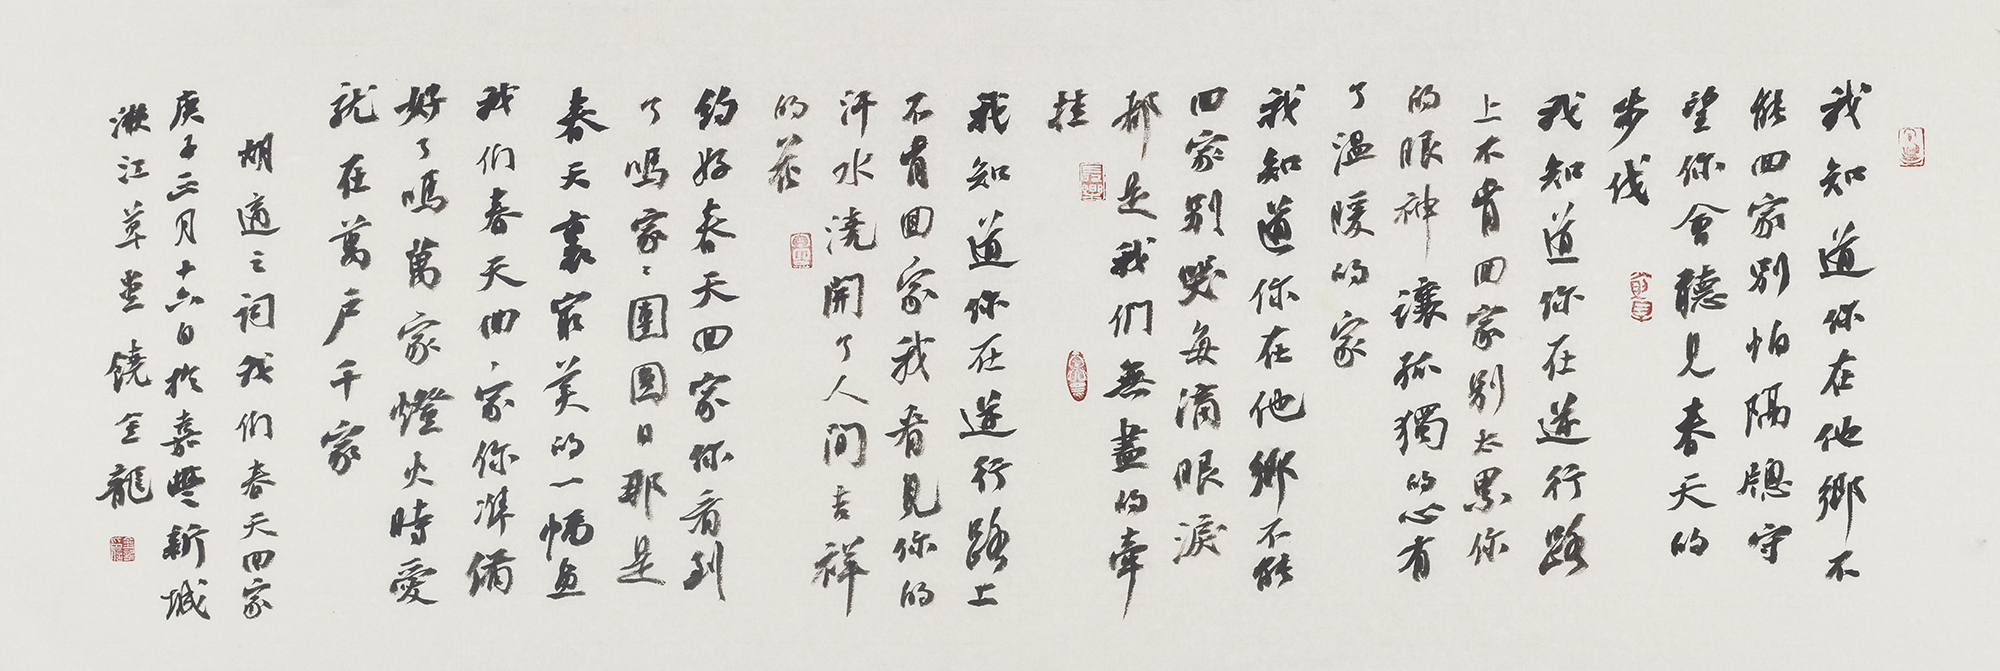 我知道你在他鄉不
能回家別怕隔牕守
望你會聽見春天的
步伐
我知道你在逆行路
上不肯回家別太累你
的眼神讓孤獨的心有
了溫暖的家
我知道你在他鄉不能
回家別哭每滴眼淚
都是我們無盡的牽
挂
我知道你在逆行路上
不肯回家我看見你的
汗水澆開了人間吉祥
的花
約好春天回家你看到
了嗎家家團圓日那是
春天裏最美的一幅畫
我們春天回回家你準備
好了嗎萬家燈火時愛
就在萬户千家
胡適之詞我們春天回家
庚子正月十六日於嘉豐新城
漵江草堂饒金龍